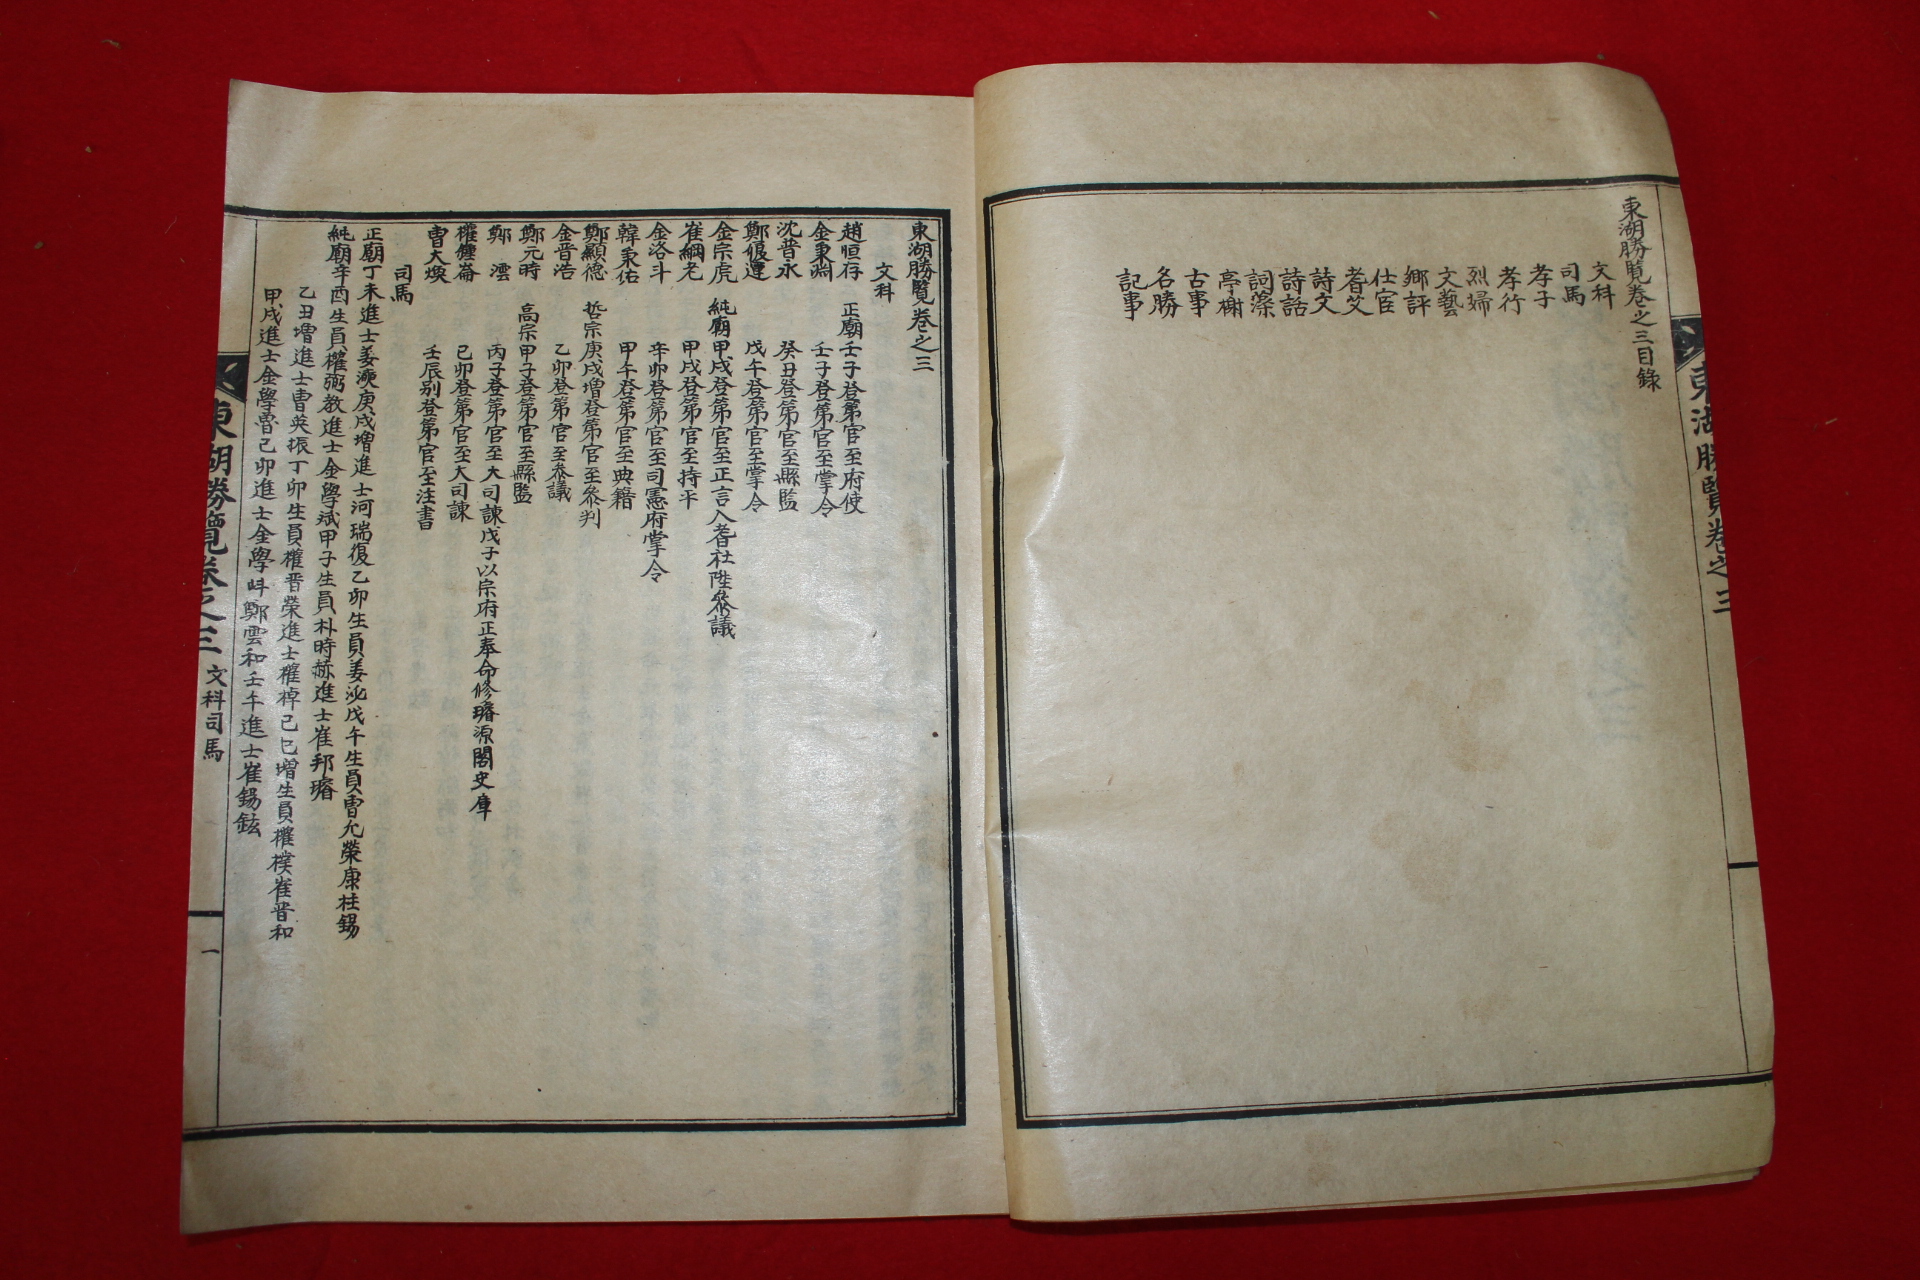 東湖勝覧卷之三目錄
文科
司馬
孝子
孝行
烈婦
文藝
鄉評
仕宦
耆艾
詩文
詩話
詞藻
亭榭
古事
名勝
記事
東湖勝覧卷之三
東湖勝覧卷之三
文科
趙恒存 正廟壬子登第官至府使
金秉淵 壬子登第官至掌令
沈普永 癸丑登第官至縣監
鄭 戊午登第官至掌令
金宗虎 純廟甲戌登第官至正言入耆社陞叅議
崔綱老 甲戌登第官至持平
金洛斗 辛卯登第官至司憲府掌令
韓秉佑 甲午登第官至典籍
鄭顯德 哲宗庚戌增登第官至叅判
金晋浩 乙卯登第官至叅議
鄭元時 高宗甲子登第官至縣監
鄭澐 丙子登第官至大司諫戊子以宗府正奉命修璿源閣史庫
權鍾崙 己卯登第官至大司諫
曺大煥 壬辰别登第官至注書
司馬
正廟丁未進士姜 庚戌增進士河瑞復乙卯生員姜泌戊午生員曺允榮康柱錫
純廟辛酉生員權弼教進士金學斌甲子生員朴時赫進士崔邦瑃
乙丑增進士曺英振丁卯生員權晋榮進士權 己巳增生員權樸崔晋和
甲戌進士金學魯己卯進士金學 鄭雲和壬午進士崔錫鉉
東湖勝覧卷之三 文科司馬 一